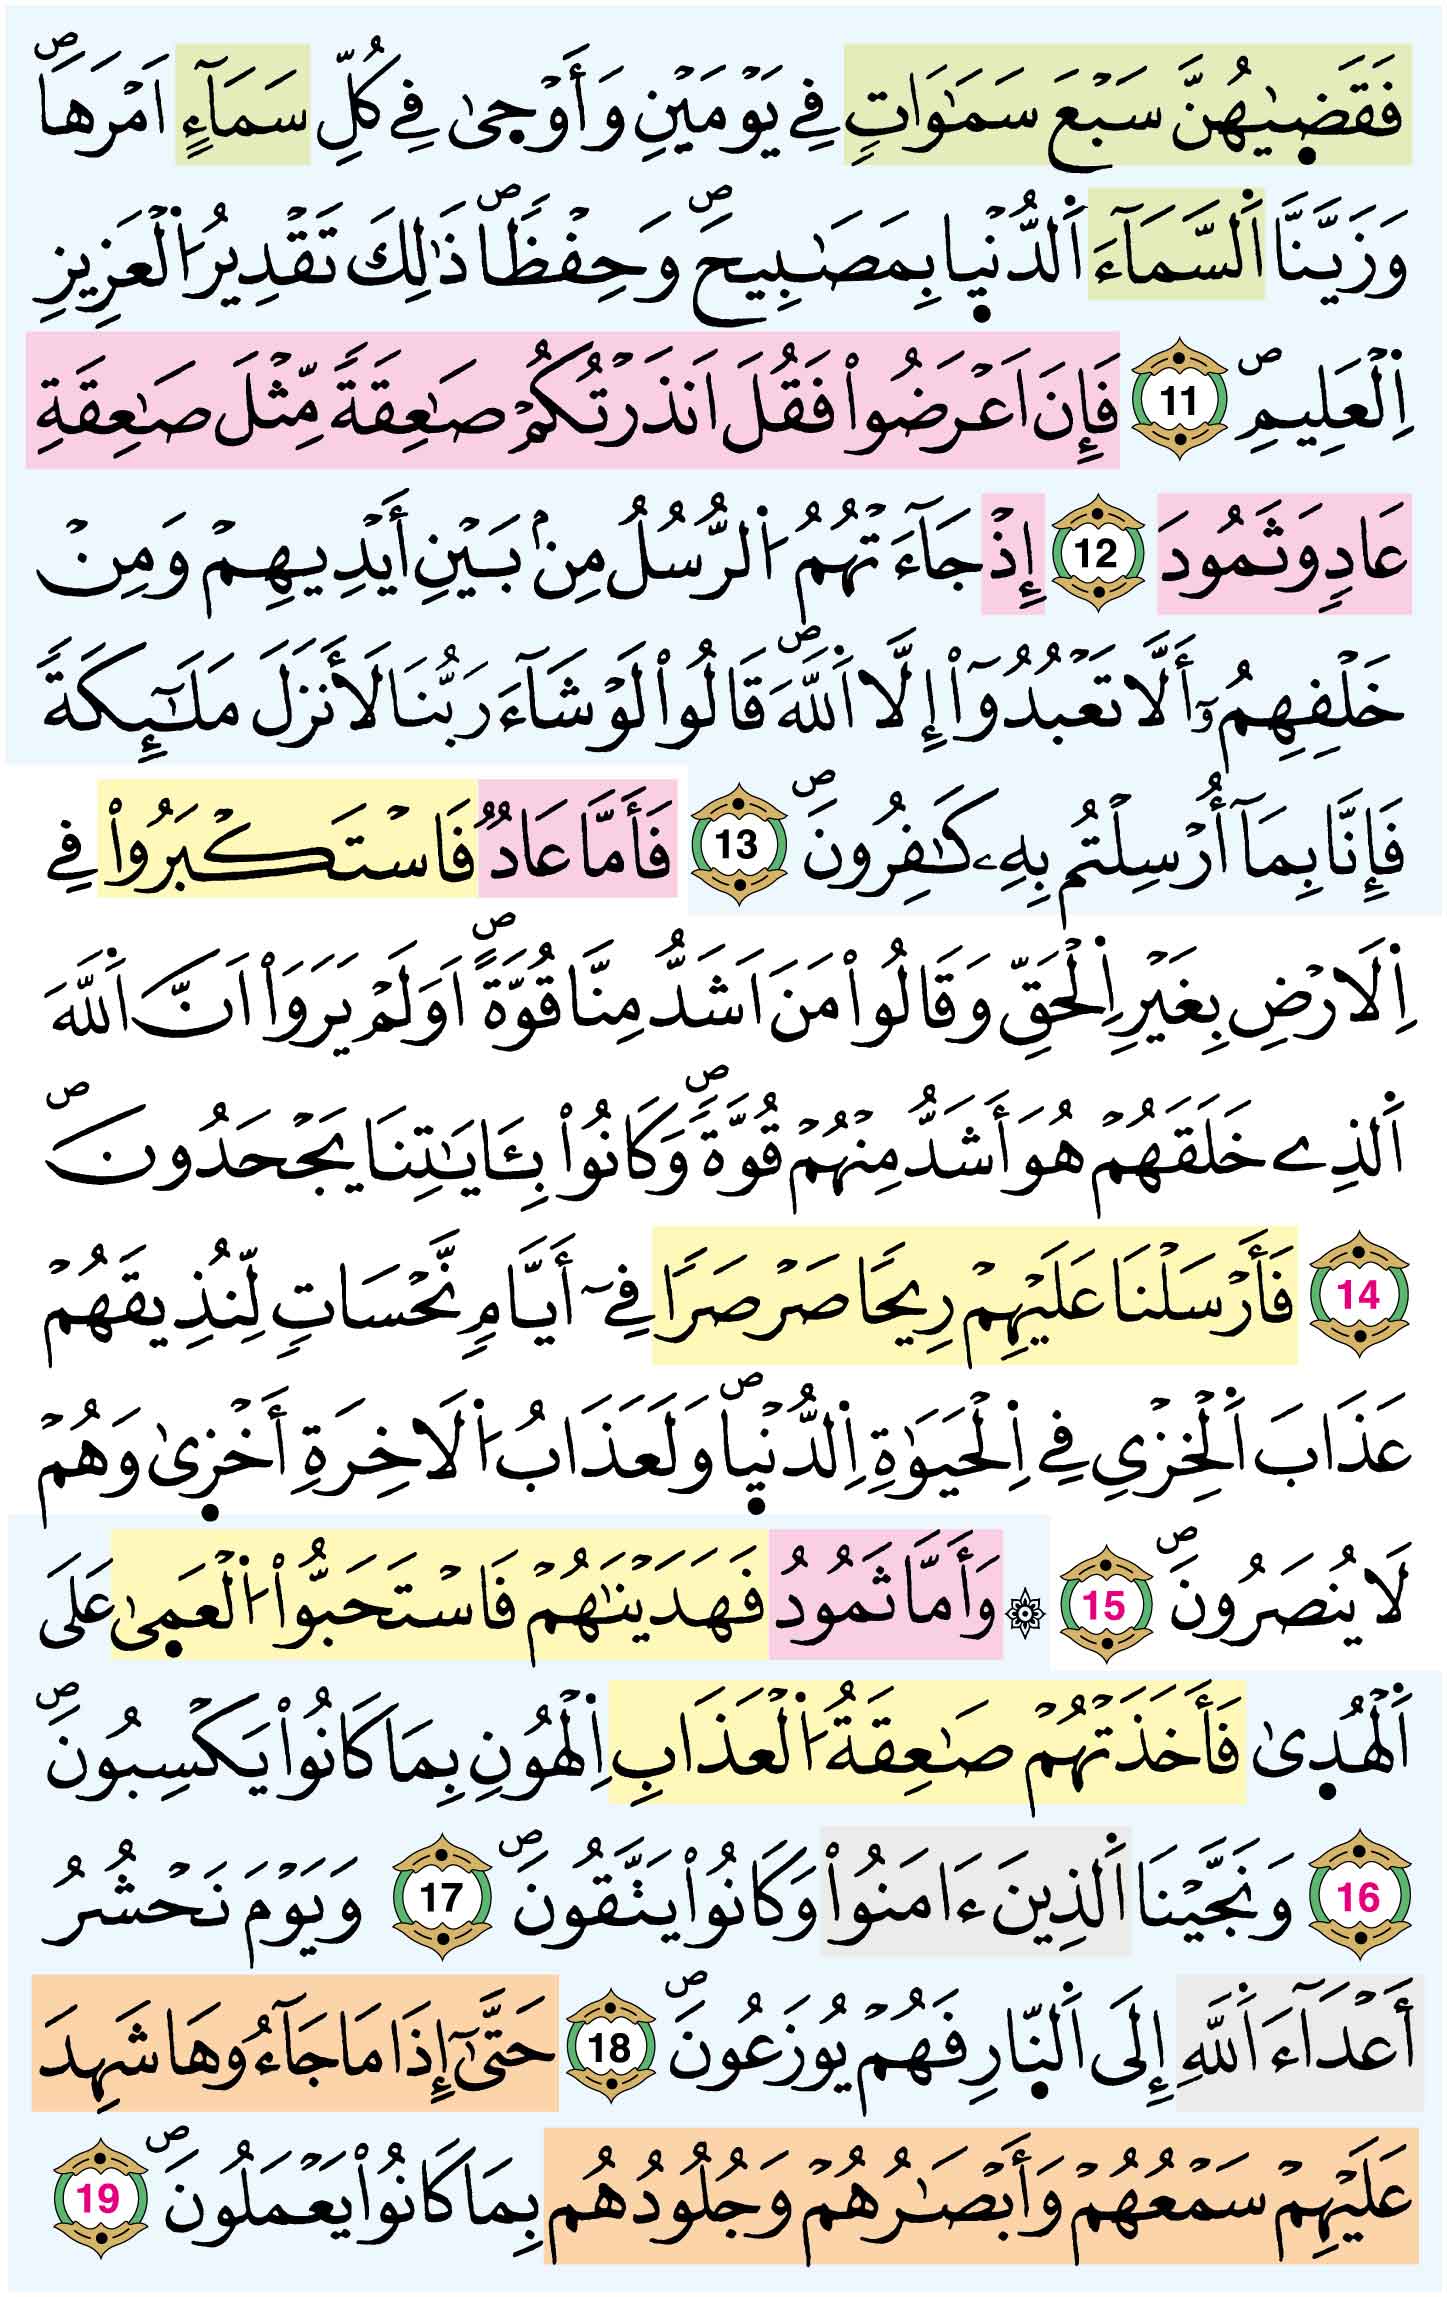 فَقَضٜىٰهُنَّ سَبْعَ سَمَٰوَاتٖ فِے يَوْمَيْنِ وَأَوْح۪يٰ فِے كُلِّ سَمَآءٍ اَمْرَهَاۖ
وَزَيَّنَّا اَ۬لسَّمَآءَ اَ۬لدُّنْي۪ا بِمَصَٰبِيحَۖ وَحِفْظاٗۖ ذَٰلِكَ تَقْدِيرُ اُ۬لْعَزِيزِ
اِ۬لْعَلِيمِۖ 11 فَإِنَ اَعْرَضُواْ فَقُلَ اَنذَرْتُكُمْ صَٰعِقَةٗ مِّثْلَ صَٰعِقَةِ
عَادٖ وَثَمُودَ 12 إِذْ جَآءَتْهُمُ اُ۬لرُّسُلُ مِنۢ بَيْنِ أَيْدِيهِمْ وَمِنْ
خَلْفِهِمُۥٓ أَلَّا تَعْبُدُوٓاْ إِلَّا اَ۬للَّهَۖ قَالُواْ لَوْ شَآءَ رَبُّنَا لَأَنزَلَ مَلَٰٓئِكَةٗ
فَإِنَّا بِمَآ أُرْسِلْتُم بِهِۦ كَٰفِرُونَۖ 13 فَأَمَّا عَادٞ فَاسْتَكْبَرُواْ فِے
اِ۬لَارْضِ بِغَيْرِ اِ۬لْحَقِّ وَقَالُواْ مَنَ اَشَدُّ مِنَّا قُوَّةًۖ اَوَلَمْ يَرَوَاْ اَنَّ اَ۬للَّهَ
اَ۬لذِے خَلَقَهُمْ هُوَ أَشَدُّ مِنْهُمْ قُوَّةٗۖ وَكَانُواْ بِـَٔايَٰتِنَا يَجْحَدُونَۖ
14 فَأَرْسَلْنَا عَلَيْهِمْ رِيحاٗ صَرْصَراٗ فِےٓ أَيَّامٖ نَّحْسَاتٖ لِّنُذِيقَهُمْ
عَذَابَ اَ۬لْخِزْيِ فِے اِ۬لْحَيَوٰةِ اِ۬لدُّنْي۪اۖ وَلَعَذَابُ اُ۬لَاخِرَةِ أَخْز۪يٰ وَهُمْ
لَا يُنصَرُونَۖ 15 ۞ وَأَمَّا ثَمُودُ فَهَدَيْنَٰهُمْ فَاسْتَحَبُّواْ اُ۬لْعَم۪يٰ عَلَي
اَ۬لْهُد۪يٰ فَأَخَذَتْهُمْ صَٰعِقَةُ اُ۬لْعَذَابِ اِ۬لْهُونِ بِمَا كَانُواْ يَكْسِبُونَۖ
16 وَنَجَّيْنَا اَ۬لذِينَ ءَامَنُواْ وَكَانُواْ يَتَّقُونَۖ 17 وَيَوْمَ نَحْشُرُ
أَعْدَآءَ اَ۬للَّهِ إِلَي اَ۬لنّ۪ارِ فَهُمْ يُوزَعُونَۖ 18 حَتَّىٰٓ إِذَا مَا جَآءُوهَا شَهِدَ
عَلَيْهِمْ سَمْعُهُمْ وَأَبْصَٰرُهُمْ وَجُلُودُهُم بِمَا كَانُواْ يَعْمَلُونَۖ 19